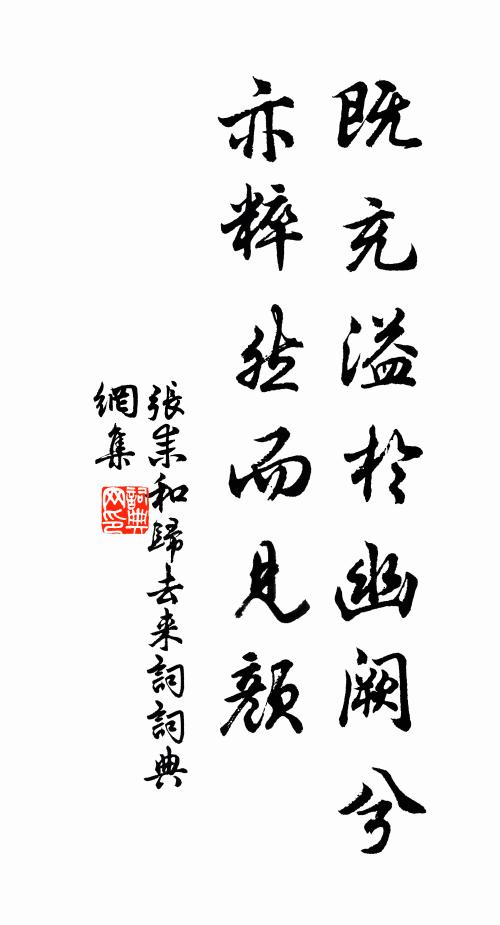 既充溢於幽闕兮
亦粹然而見顏
張耒和歸去来詞詞典
網集
詞典
网印